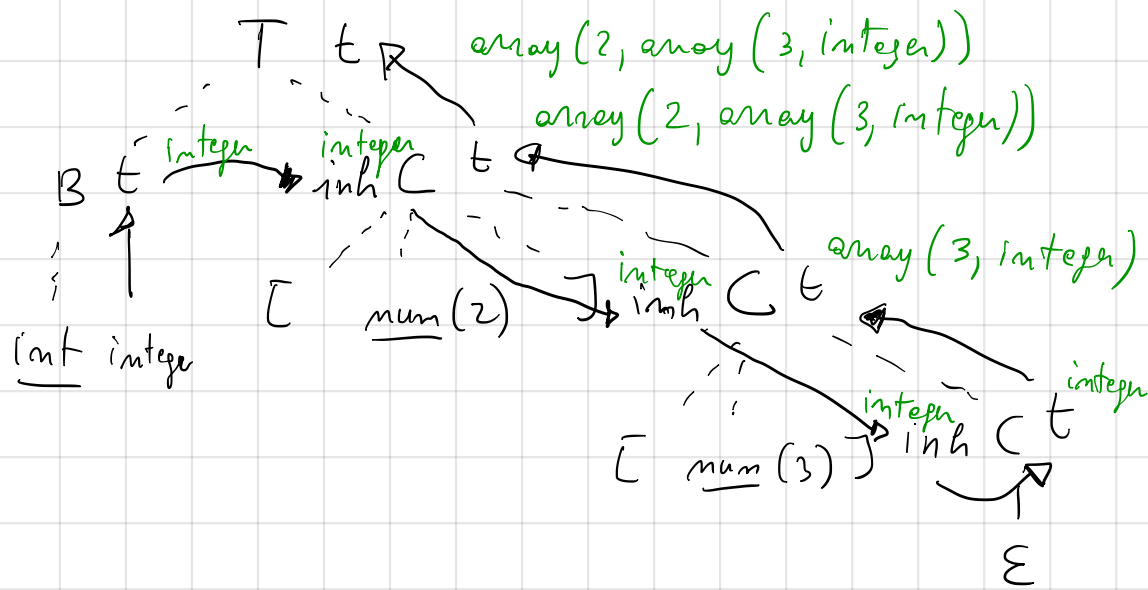 T t array(2, array(3, integer))
array(2, array(3, integer))
integer integer
B t inh C t
array(3, integer)
integer
[ num(2) ] inh C t
int integer
integer
integer
[ num(3) ] inh C t
ε